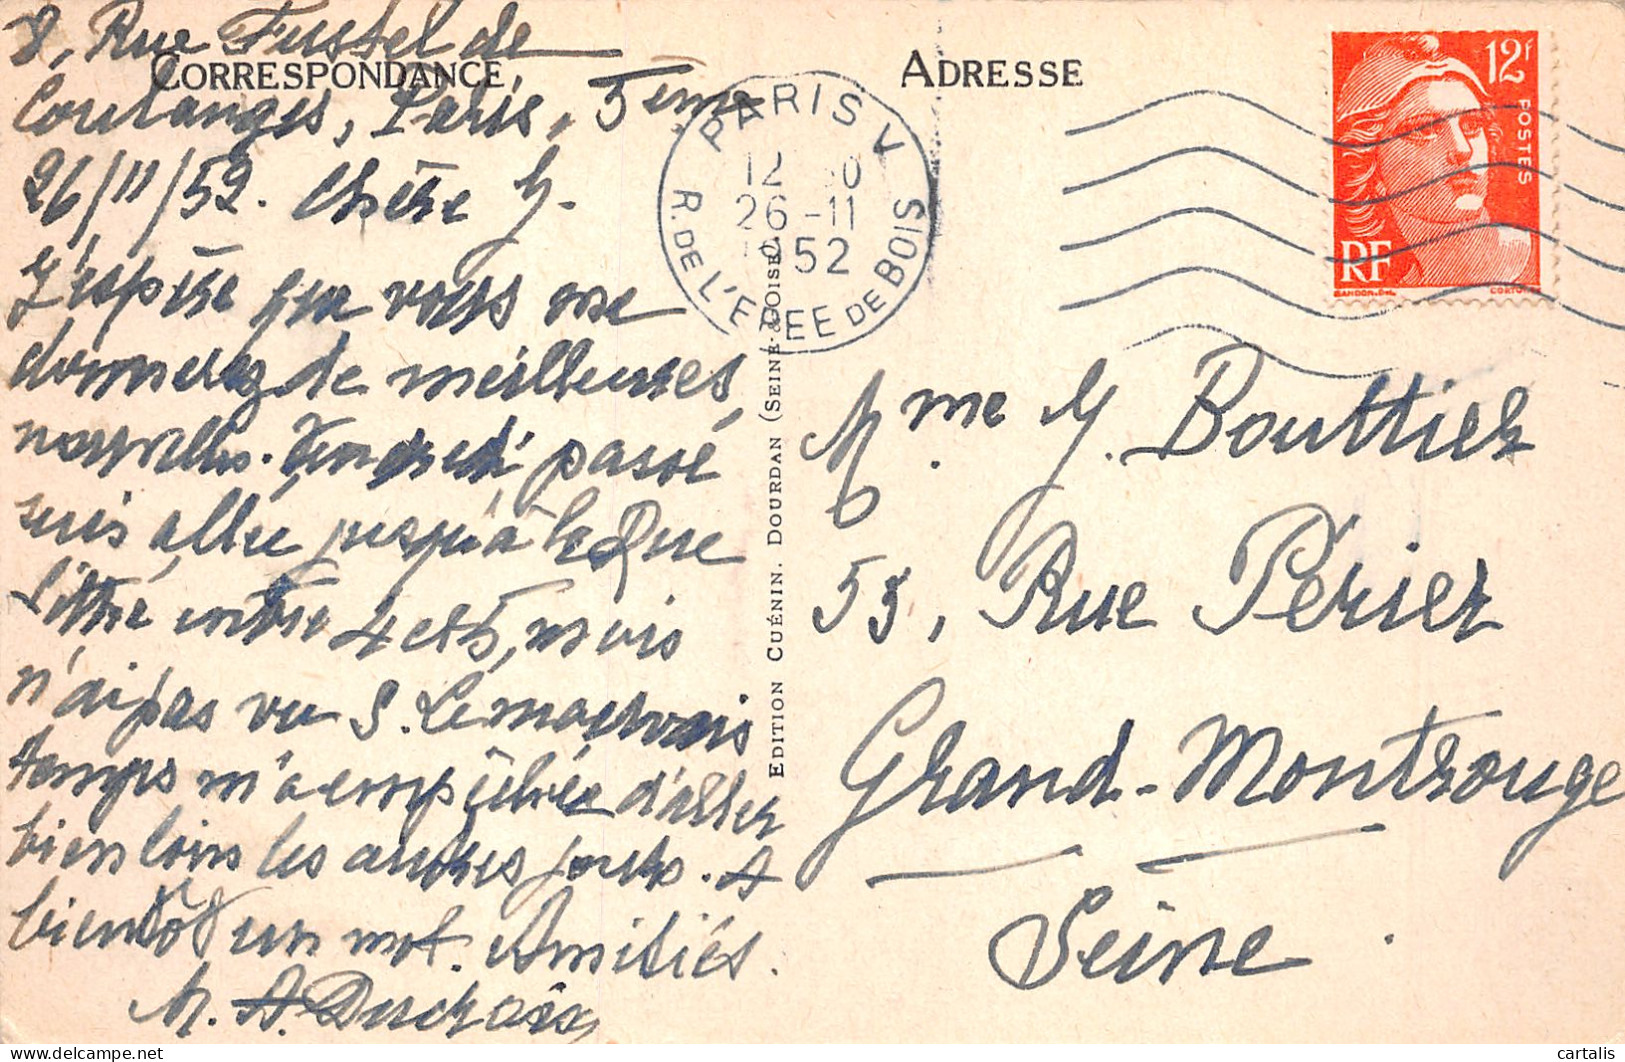 8, Rue Fustel de
CORRESPONDANCE
Coulanges, Paris, 5eme
26/11/52. Chère Y.
J'espère que vous me
donnerez de meilleures
nouvelles. Vendredi passé
suis allée jusqu'à la Rue
Littré entre 4 et 5, mais
n'ai pas vu S. Le mauvais
temps m'a empêchée d'aller
bien loin les autres jours. A
bientôt un mot. Amitiés.
M. A.
EDITION CUÉNIN. DOURDAN (SEINE-&-OISE)
ADRESSE
PARIS V
12
26-11
1952
R. DE L'EPEE DE BOIS
12F
POSTES
RF
GANDON.DEL.
Mme Y. Bouttier
53, Rue Périer
Grand-Montrouge
Seine
cartalis